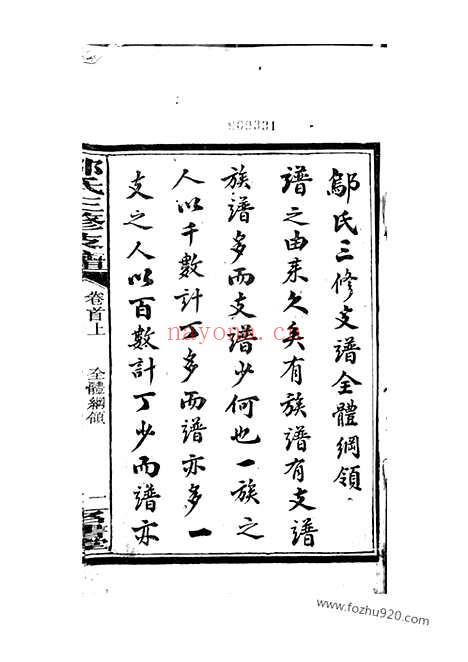 869331
鄔氏三修支譜全體綱領
譜之由来久矣有族譜有支譜
族譜多而支譜少何也一族之
人以千數計丁多而譜亦多一
支之人以百數計丁少而譜亦
鄔氏三修支譜
卷首上
全體綱領
一
nayona.cn
www.fozhu920.com